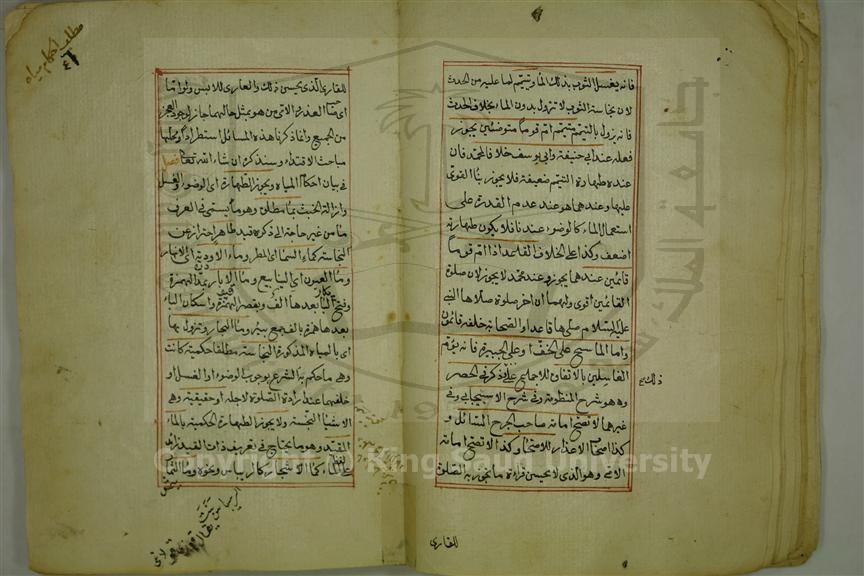 فانه يغسل الثوب بذلك الماء ويتيمم لما عليه من الحدث
لان نجاسة الثوب لا تزول بدون الماء بخلاف الحدث
فانه يزول بالتيمم متيمم ام قوما متوضئين يجوز
فعله عند ابى حنيفة وابى يوسف خلافا لمحمد فان
عنده طهارة التيمم ضعيفة فلا يجوز بنا القوى
عليها وعندهما هو عند عدم القدرة على
استعمال الماء كالوضوء عندنا فلا يكون طهارته
اضعف وكذا على الخلاف القاعد اذا ام قوما
قائمين عندهما يجوز وعند محمد لا يجوز لان صلوة
القائمين اقوى ولهما ان اخر صلوة صلاها النبى
عليه السلام صلى بها قاعدا والصحابة خلفه قائمون
واما الماسح على الخف او على الجبيرة فانه يؤم
الغاسلين بالاتفاق للاجماع على ذكر فى الحصر
وهو شرح المنظومة وفى شرح الاسبيجابى وفى
غيرهما لا تصح امامة صاحب الجرح السائل و
كذا اصحاب الاعذار للاصحاء وكذا لا تصح امامة
الامى وهو الذى لا يحسن قراءة ما تجوز به الصلوة
للقارى
ذلك
مطلب احكام مياه
٤٦
للقارئ الذى يحسن ذلك والعارى للابس ولو اتما
اى صاحب العذر والامى من هو بمثل حالهما جاز لوجود العجز
من الجميع وانما ذكرنا هذه المسائل استطرادا ومحلها
مباحث الاقتداء وسنذكره ان شاء الله تعالى فصل
فى بيان احكام المياه ويجوز الطهارة اى الوضوء والغسل
وازالة الخبث بماء مطلق وهو ما يسمى فى العرف
ماء من غير حاجة الى ذكر قيد طاهر احتراز عن
النجاسة كماء السماء اى المطر وماء الاودية اى الانهار
وماء العيون اى الينابيع وماء الابار بمد الهمزة
وفتح الباء بعدها الف وبقصر الهمزة واسكان الباء
بعدها همزة بالف جمع بئر وماء البحار وتزول بها
اى بالمياه المذكورة النجاسة مطلقا حكمية كانت
وهى ما حكم به الشرع بوجوب الوضوء او الغسل او
خلفهما عند ارادة الصلوة لاجله او حقيقية وهى
الاشياء النجسة ولا يجوز الطهارة الحكمية بالماء
المقيد وهو ما يحتاج فى تعريف ذاته الى قيد زائد
على الماء كماء الاشجار كالريباس ونحوه وماء الثمار
Copyright © King Saud University